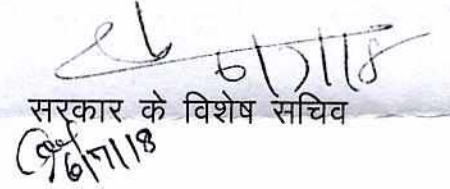 6/7/18
सरकार के विशेष सचिव
6/7/18